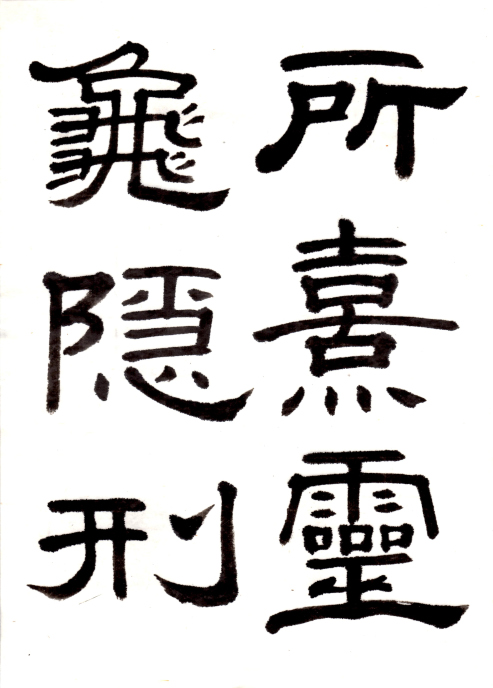 所熹靈
龜隱刑